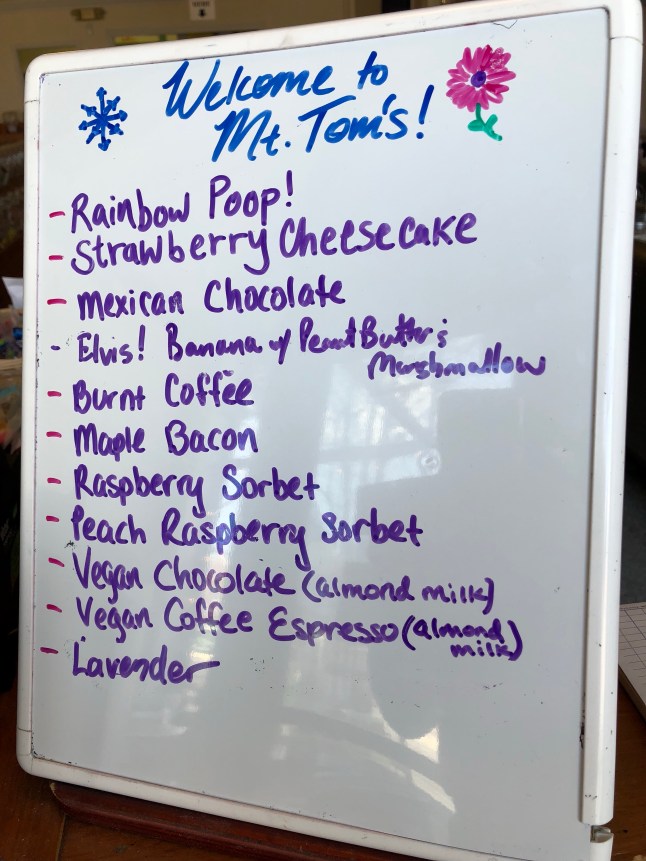 Welcome to
Mt. Tom's!
- Rainbow Poop!
- Strawberry Cheesecake
- Mexican Chocolate
- Elvis! Banana w/ Peanut Butter &
Marshmallow
- Burnt Coffee
- Maple Bacon
- Raspberry Sorbet
- Peach Raspberry Sorbet
- Vegan Chocolate (almond milk)
- Vegan Coffee Espresso (almond
milk)
- Lavender